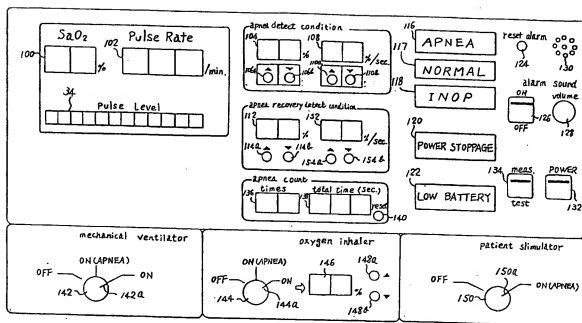 SaO2 Pulse Rate
100 102
% /min.
34
Pulse Level
apnea detect condition
104 108
% %/sec.
106a 106b 110a 110b
apnea recovery detect condition
112 152
% %/sec.
114a 114b 154a 154b
apnea count
136 times 138 total time (sec.)
reset
140
116 APNEA
117 NORMAL
118 INOP
120
POWER STOPPAGE
122
LOW BATTERY
reset alarm
124 130
alarm sound
ON volume
OFF 126 128
134 meas. POWER
test 132
mechanical ventilator
ON(APNEA)
OFF ON
142 142a
oxygen inhaler
ON(APNEA)
OFF ON
144 144a
146
%
148a
148b
patient stimulator
ON(APNEA)
OFF 150a ON
150